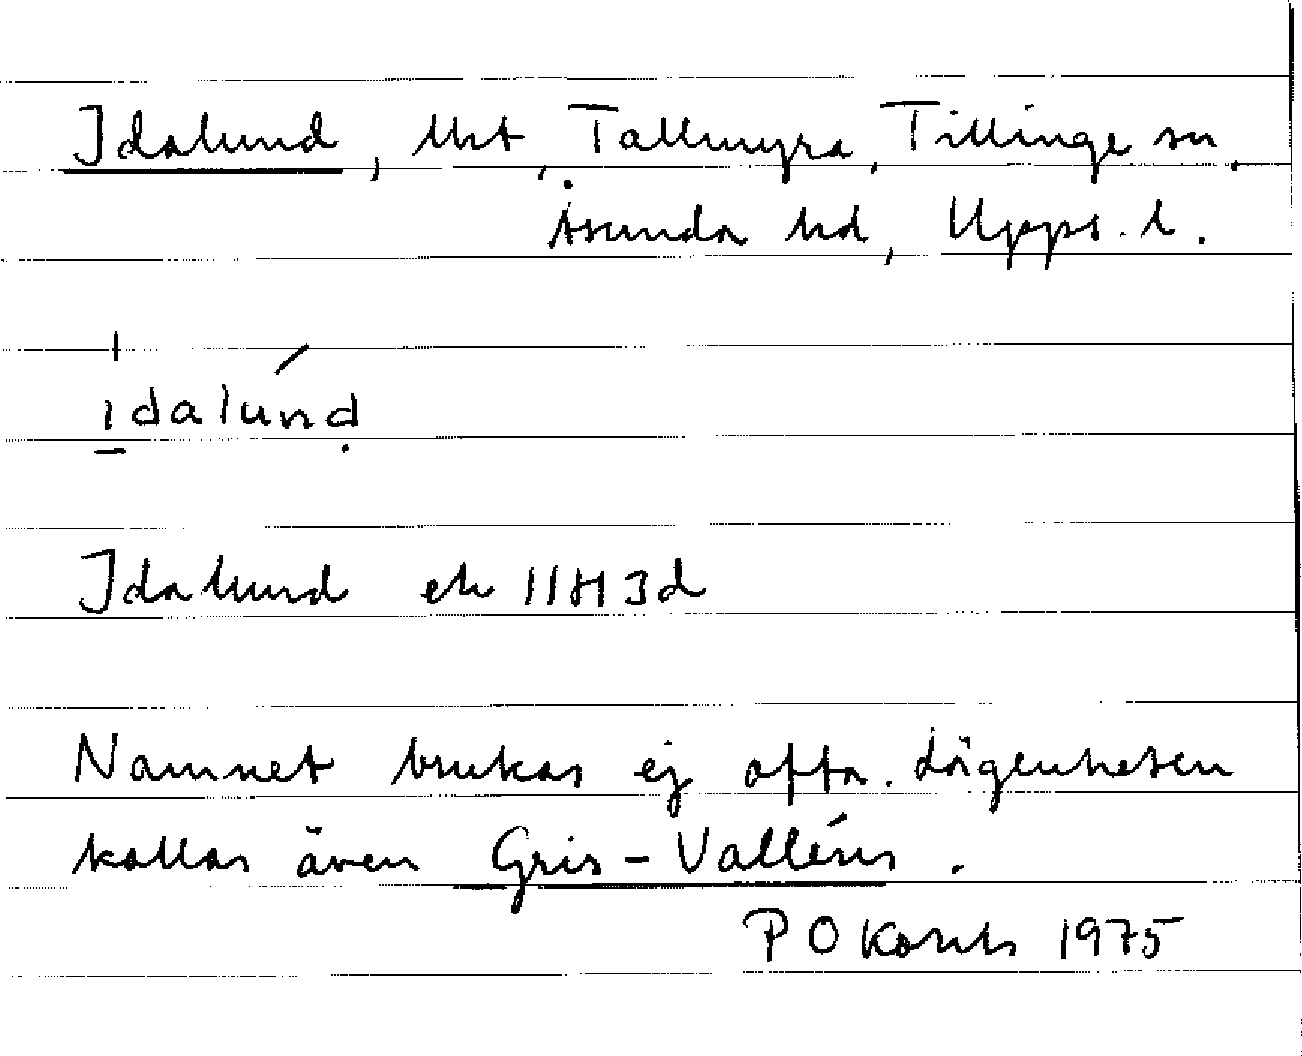 Idalund, lht, Tallmyra, Tillinge sn,
Åsunda hd, Upps. l.
ịdalúnd
Idalund ek 11H 3d
Namnet brukas ej ofta. Lägenheten
kallas även Gris-Valléns.
P O 1975